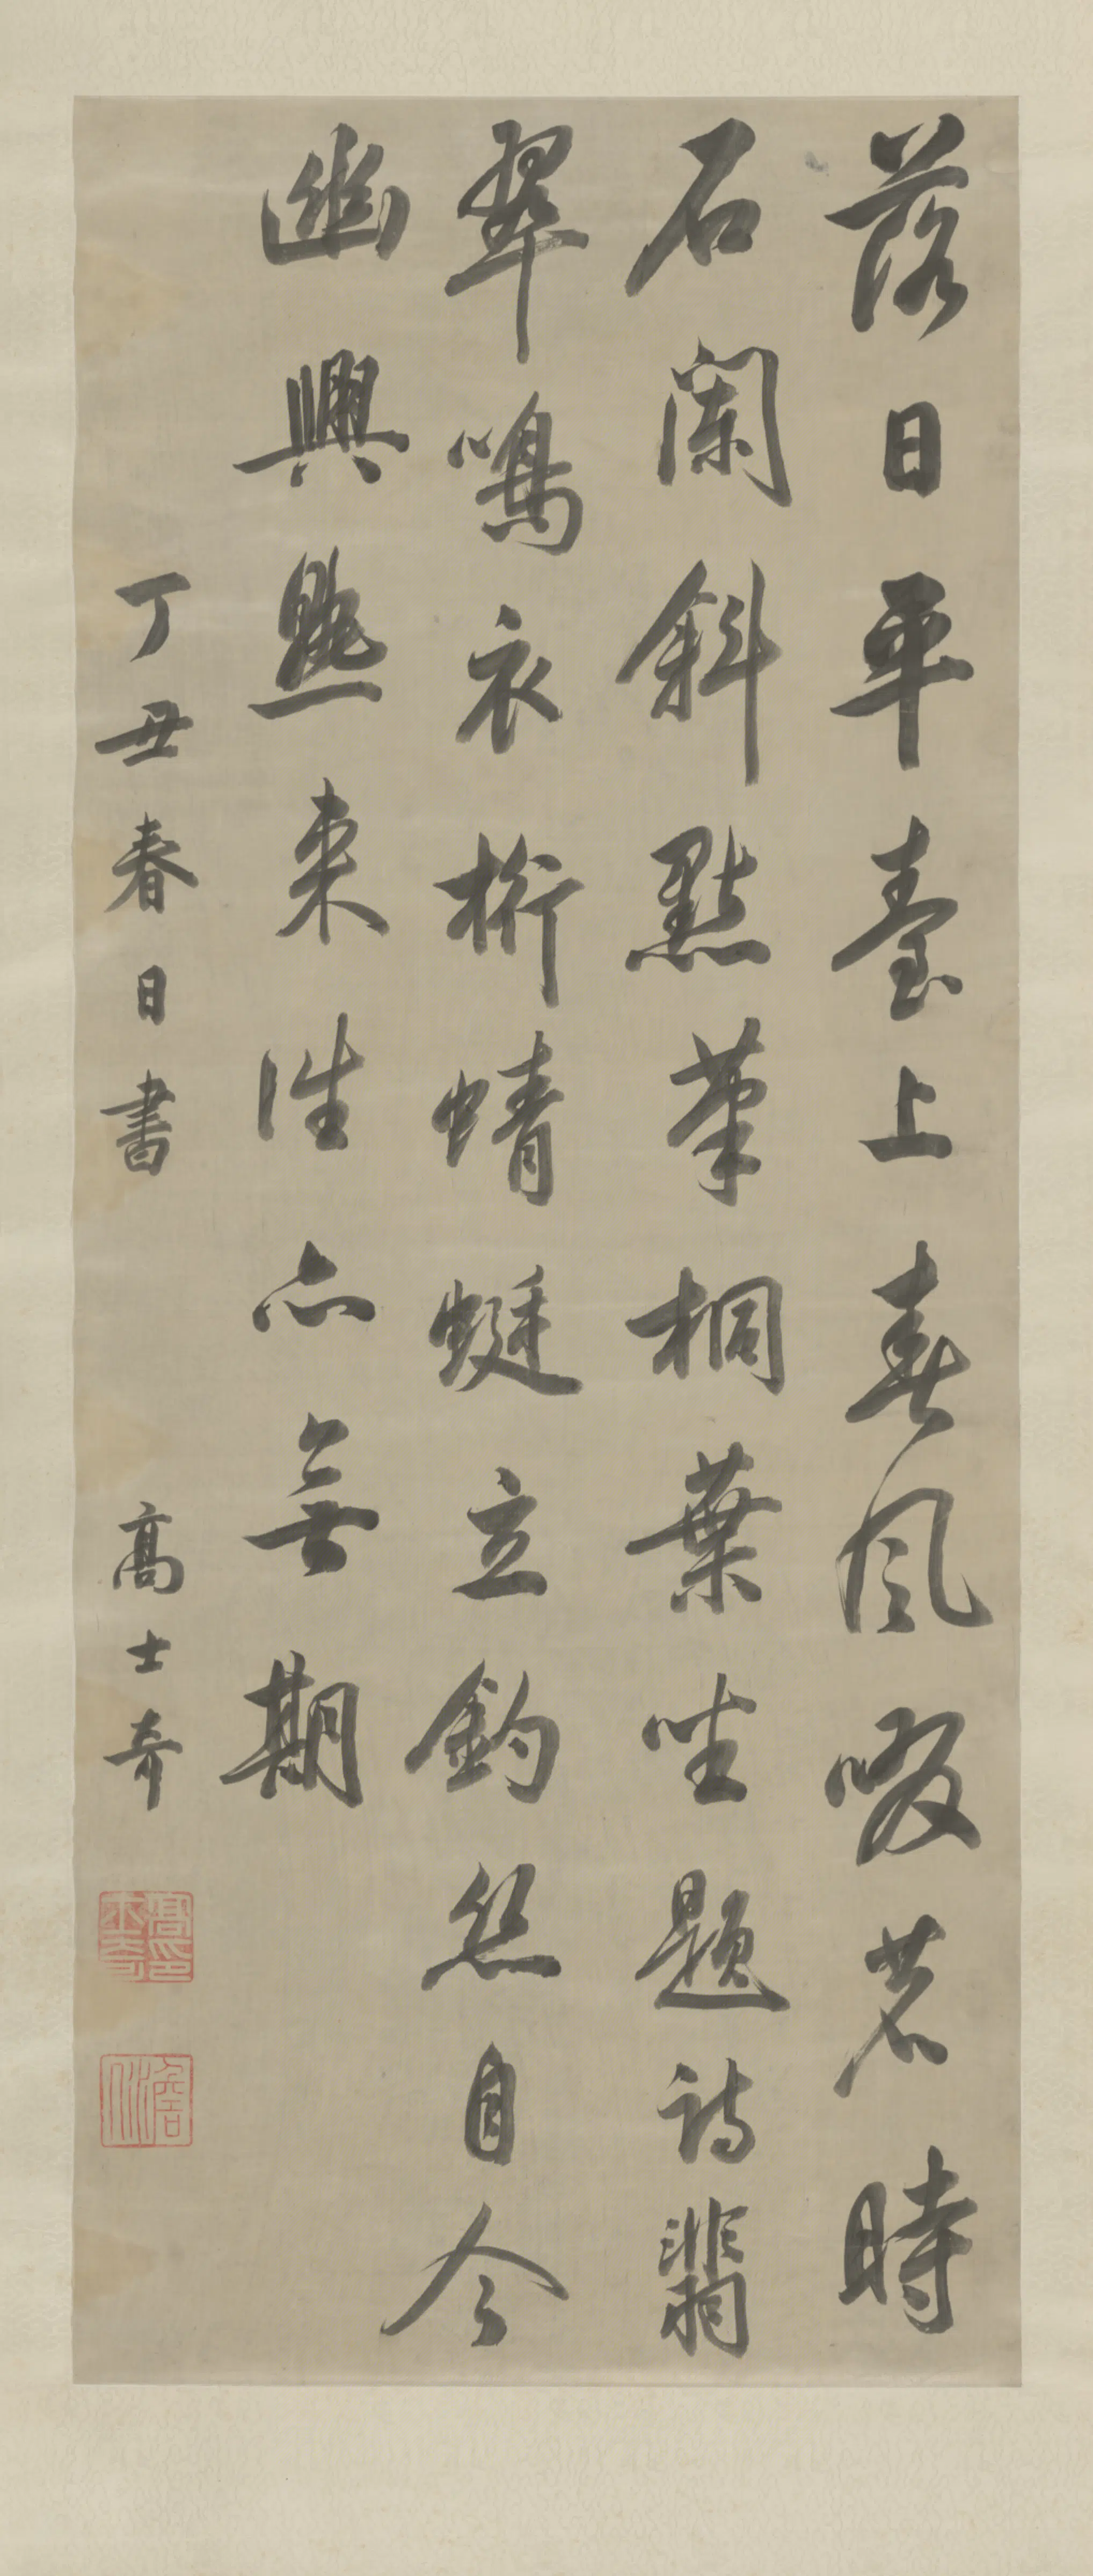 落日平臺上春風啜茗時
石闌斜點筆桐葉坐題詩翡
翠鳴衣桁蜻蜓立釣絲自今
幽興熟来往亦無期
丁丑春日書 高士奇
高士奇印
澹人